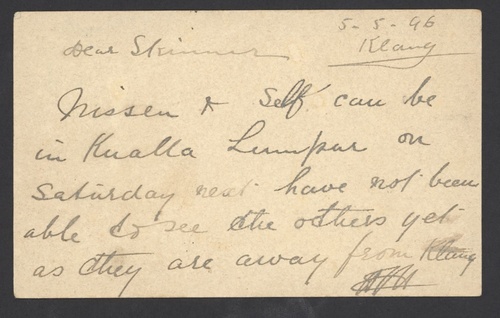 5-5-96
Klang
Dear Skinner
Nissen & Self can be
in Kualla Lumpur on
Saturday next have not been
able to see the others yet
as they are away from Klang